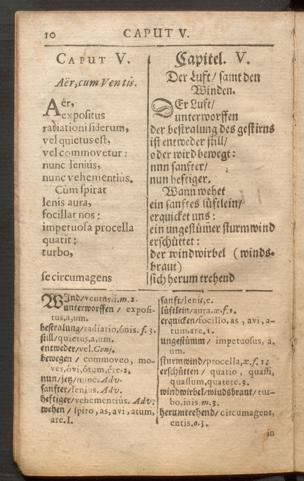 10 CAPUT V.
CAPUT V.
Aër, cum Ventis.
Aër,
expositus
radiationi siderum,
vel quietus est,
vel commovetur:
nunc lenius,
nunc vehementiùs.
Cùm spirat
lenis aura,
focillat nos:
impetuosa procella
quatit:
turbo,
se circumagens
Capitel. V.
Der Luft/ samt den
Winden.
DEr Luft/
unterworffen
der bestralung des gestirns
ist entweder still/
oder wird bewegt:
nun sanfter/
nun heftiger.
Wann wehet
ein sanftes lüftlein/
erquicket uns:
ein ungestümer sturmwind
erschüttet:
der windwirbel (winds-
braut)
sich herum trehend
WInd/ventus,i.m.2.
unterworffen / exposi-
tus,a,um.
bestralung/radiatio,ónis.f.3.
still/quietus,a,um.
entweder/vel.Conj.
bewegen / commoveo, mo-
ves,óvi,ótum,ére.2.
nun/jez/nunc.Adv.
sanfter/lenius.Adv.
heftiger/vehementiùs. Adv.
wehen / spiro,as,avi,atum,
are.1.
sanft/lenis,e.
lüftlein/aura,æ.f.1.
erquicken/focillo,as,avi,a-
tum,are.1.
ungestümm / impetuosus, a,
um.
sturmwind/procella,æ.f.1.
erschütten / quatio, quassi,
quassum,quatere.3.
windwirbel/windsbraut/tur-
bo,inis.m.3.
herumtrehend/ circumagens,
entis.o.3.
in